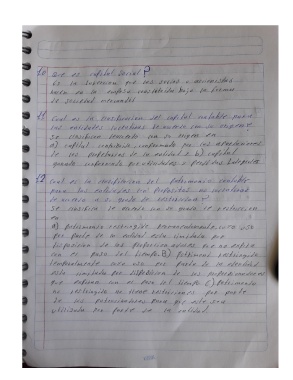 10 Que es capital social?
Es la que los socios o accionistas
en la empresa bajo su forma
de sociedad mercantil
11 Cual es la clasificacion del capital contable para
las entidades lucrativas de acuerdo con su origen?
Se clasifica de acuerdo con su origen en
a) capital contribuido, conformado por las aportaciones
de los propietarios de la entidad y b) capital
ganado conformado por utilidades y perdidas
12 Cual es la clasificacion del patrimonio contable
para las entidades con propositos no lucrativos
de acuerdo a su grado de restriccion?
Se clasifica de acuerdo con su grado de restriccion
en
a) patrimonio restringido permanentemente, cuyo uso
por parte de la entidad esta limitado por
disposicion de los patrocinadores que no expira
con el paso del tiempo. B) Patrimonio restringido
temporalmente cuyo uso por parte de la entidad
esta limitado por disposicion de los patrocinadores
que expiran con el paso del tiempo C) Patrimonio
no restringido no tiene restricciones por parte
de los patrocinadores para que este sea
utilizado por parte de la entidad.